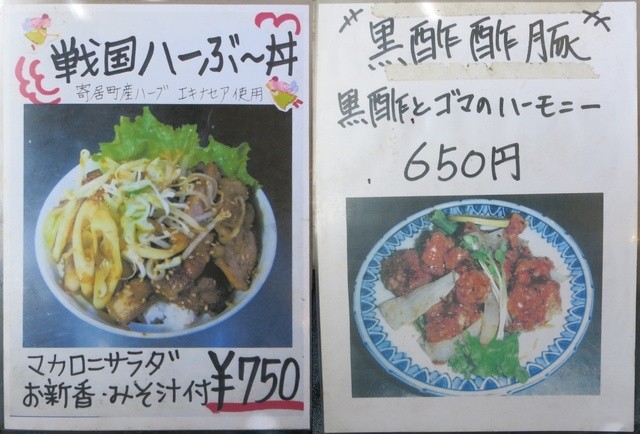 戦国ハーぶ〜丼
寄居町産ハーブ エキナセア使用
マカロニサラダ
お新香・みそ汁付 ¥750
黒酢酢豚
黒酢とゴマのハーモニー
650円